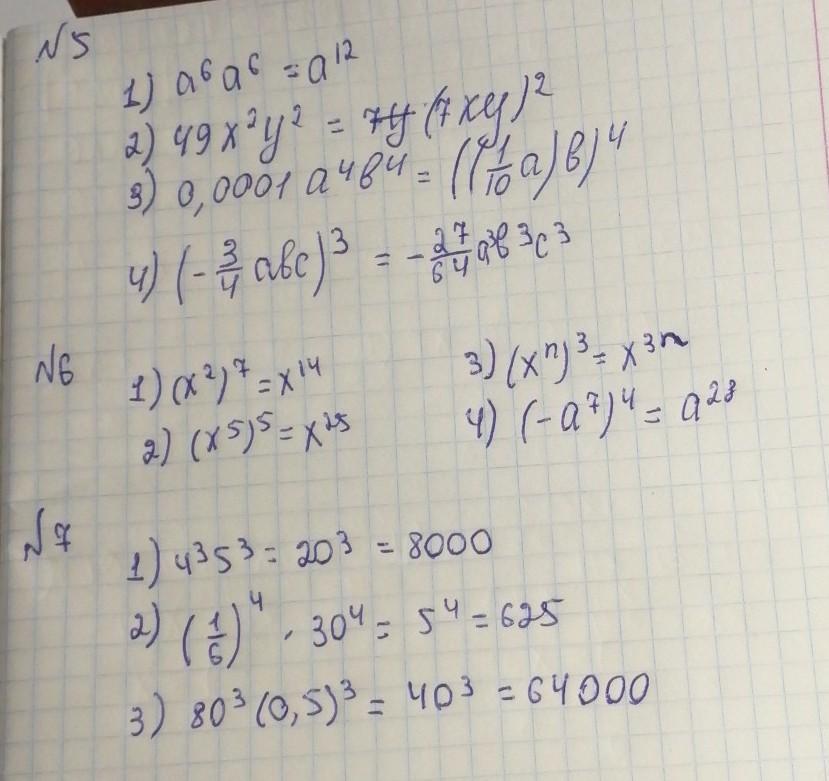 №5
1) a⁶a⁶ = a¹²
2) 49x²y² = (7xy)²
3) 0,0001a⁴b⁴ = ((1/10 a)b)⁴
4) (-3/4 abc)³ = -27/64 a³b³c³
№6
1) (x²)⁷ = x¹⁴
2) (x⁵)⁵ = x²⁵
3) (xⁿ)³ = x³ⁿ
4) (-a⁷)⁴ = a²⁸
№7
1) 4³5³ = 20³ = 8000
2) (1/6)⁴ · 30⁴ = 5⁴ = 625
3) 80³(0,5)³ = 40³ = 64000